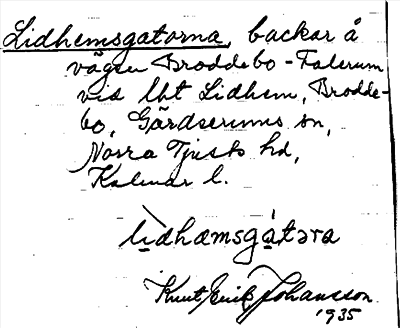 Lidhemsgatorna, backar å
vägen Broddebo-Falerum
vid lht Lidhem, Brodde-
bo, Gärdserums sn,
Norra Tjusts hd,
Kalmar l.
lìdhæmsgátəra
Knut Erik Johansson
1935